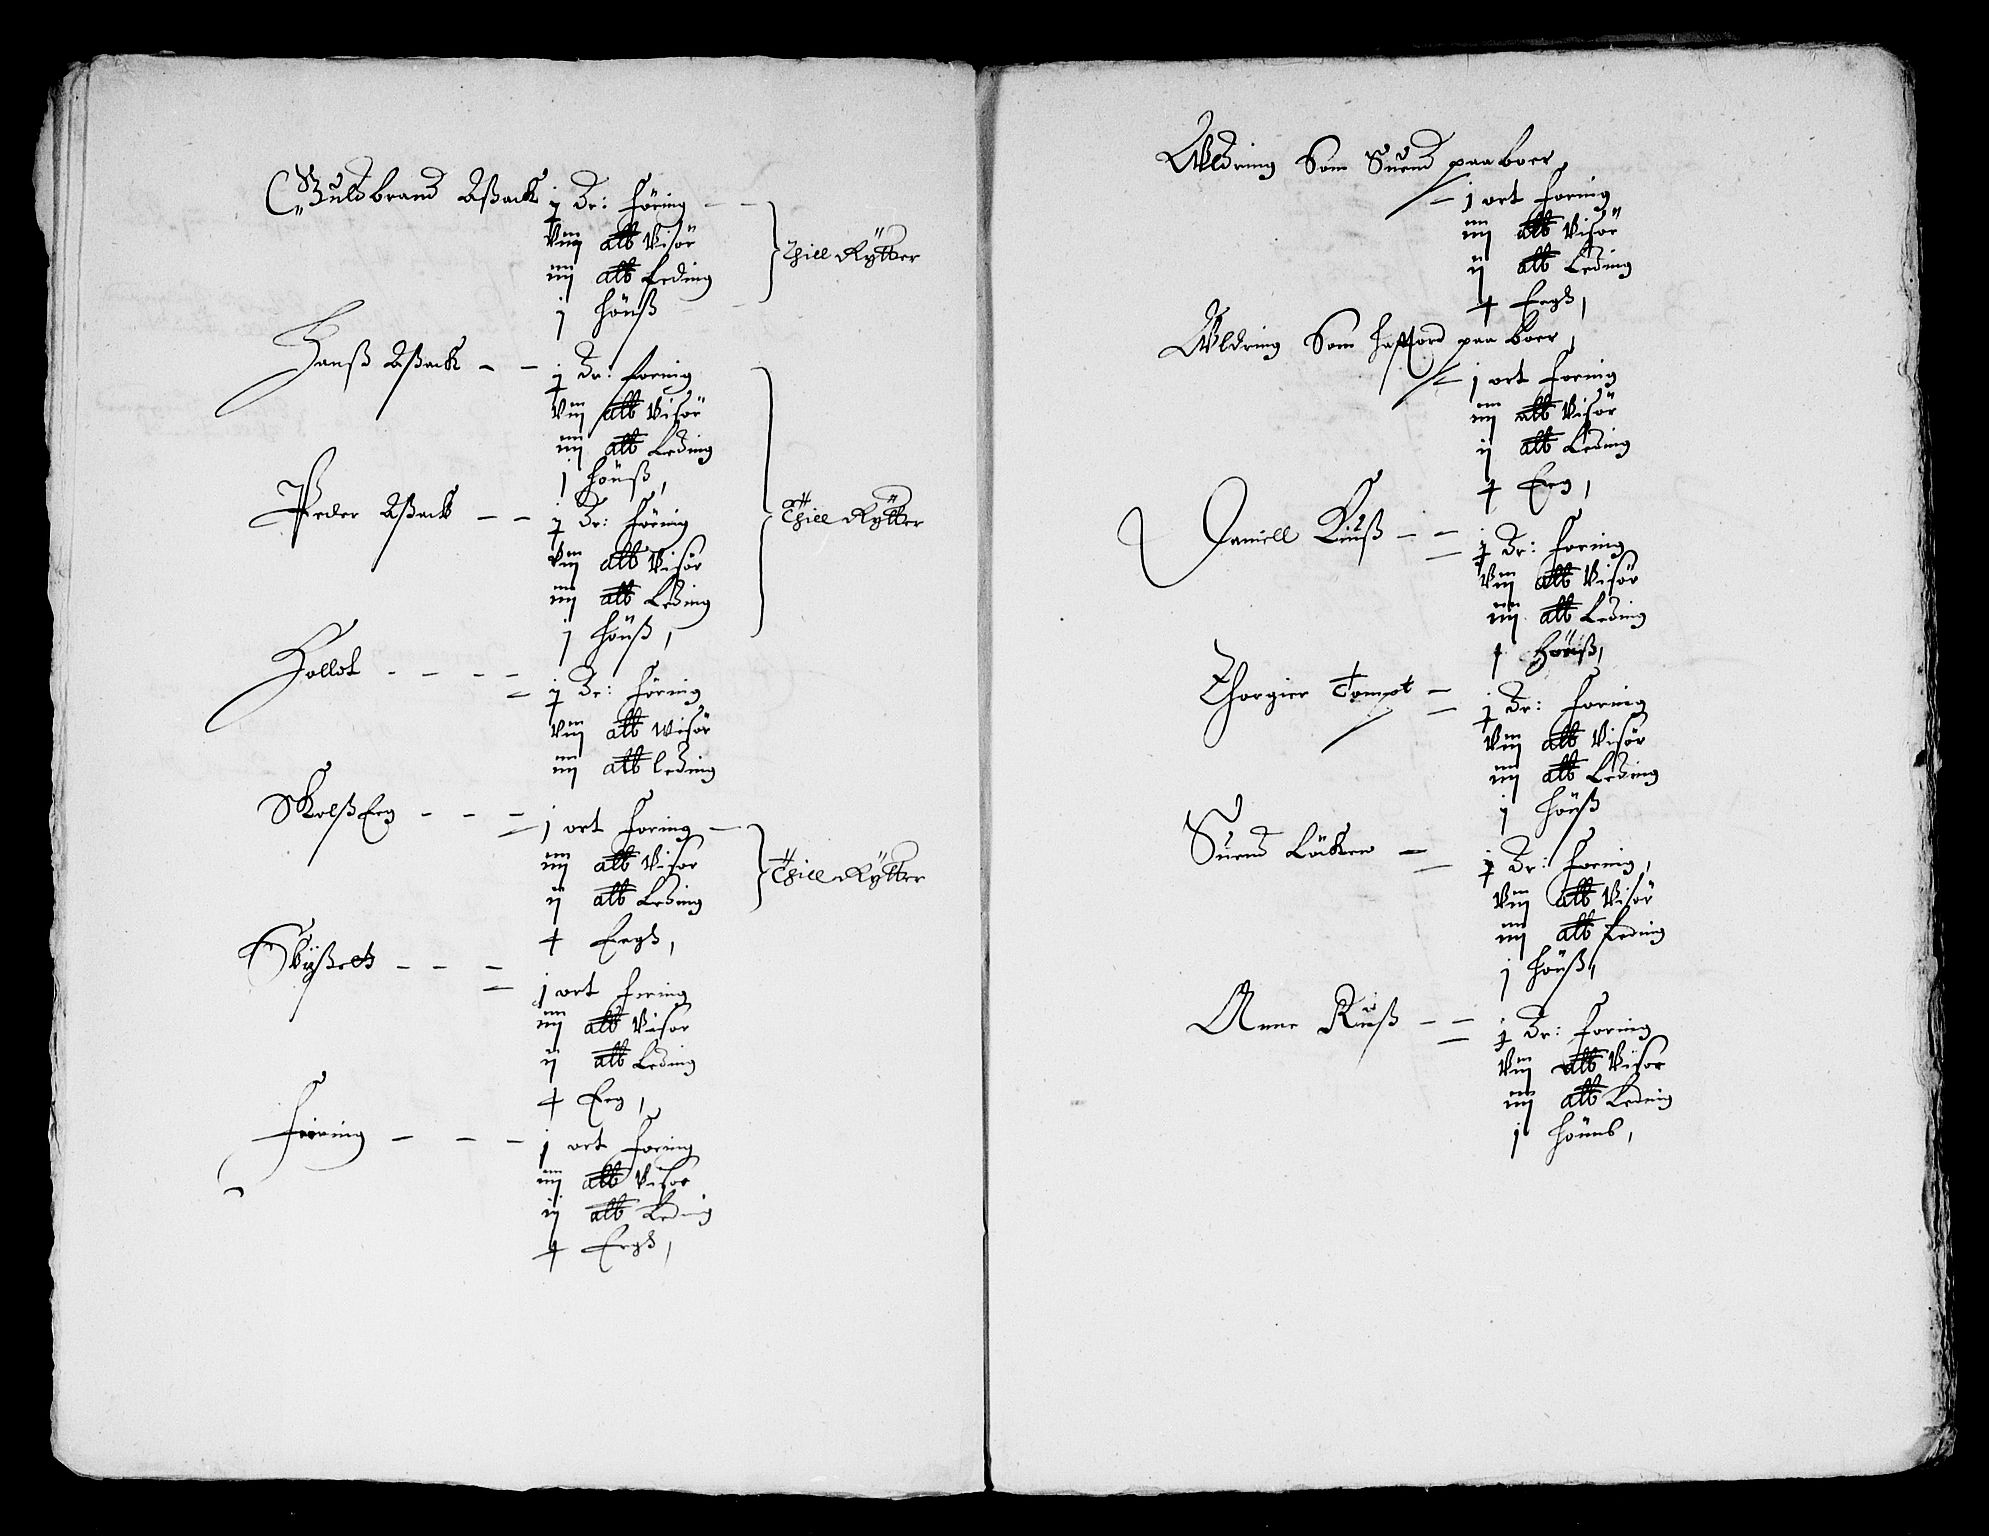 Guldbrand Aßack j Dr: föring
Viij alb Visör
iiij alb Leding
j Hönß
Thill Rÿtter
Hanß Aßack j Dr: foring
Viij alb Visör
iiij alb Leding
j Hönß,
Peder Aßack j Dr: föring
Viij alb Visör
iiij alb Leding
j Hönß,
Thill Rÿtter
Hollot j Dr: föring
Viij alb Wisör
iiij alb leding
Skolß Eeg j ort foring
iiij alb Visor
ij alb Leding
4 Eegh,
Thill Rÿtter
j ort foring
iiij alb Visor
ij alb Leding
4 Eeg,
Föring j ort foring
iiij alb Visör
ij alb Leding
4 Eegh,
Wldring Som Suend paa boer,
j ort foring
iiij alb Visör
ij alb Leding
4 Eegh,
Wldring Som Haftord paa boer,
j ort foring
iiij alb Visör
ij alb Leding
4 Eeg,
Daniell Ruuß j Dr: foring
Viij alb Visör
iiij alb Leding
1 Hönß,
Thorgier Tompt j Dr: foring
Viij alb Visör
iiij alb Leding
j Hönß
Suend Löcken j Dr: foring,
Viij alb Visör
iiij alb Leding
j Hönß,
Anne Ruuß j Dr: foring
Viij alb Visör
iiij alb Leding
j Hönns,